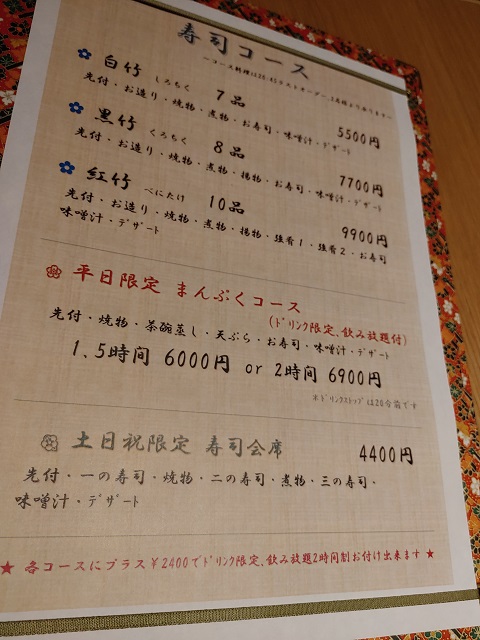 寿司コース
～コース料理は20:45ラストオーダー、2名様より承ります～
白竹 しろちく 7品 5500円
先付・お造り・焼物・煮物・お寿司・味噌汁・ﾃﾞｻﾞｰﾄ
黒竹 くろちく 8品 7700円
先付・お造り・焼物・煮物・揚物・お寿司・味噌汁・ﾃﾞｻﾞｰﾄ
紅竹 べにたけ 10品 9900円
先付・お造り・焼物・煮物・揚物・強肴1・強肴2・お寿司
味噌汁・ﾃﾞｻﾞｰﾄ
平日限定 まんぷくコース
(ﾄﾞﾘﾝｸ限定、飲み放題付)
先付・焼物・茶碗蒸し・天ぷら・お寿司・味噌汁・ﾃﾞｻﾞｰﾄ
1、5時間 6000円 or 2時間 6900円
※ﾄﾞﾘﾝｸｽﾄｯﾌﾟは20分前です
土日祝限定 寿司会席 4400円
先付・一の寿司・焼物・二の寿司・煮物・三の寿司・
味噌汁・ﾃﾞｻﾞｰﾄ
★ 各コースにプラス¥2400でﾄﾞﾘﾝｸ限定、飲み放題2時間制お付け出来ます ★